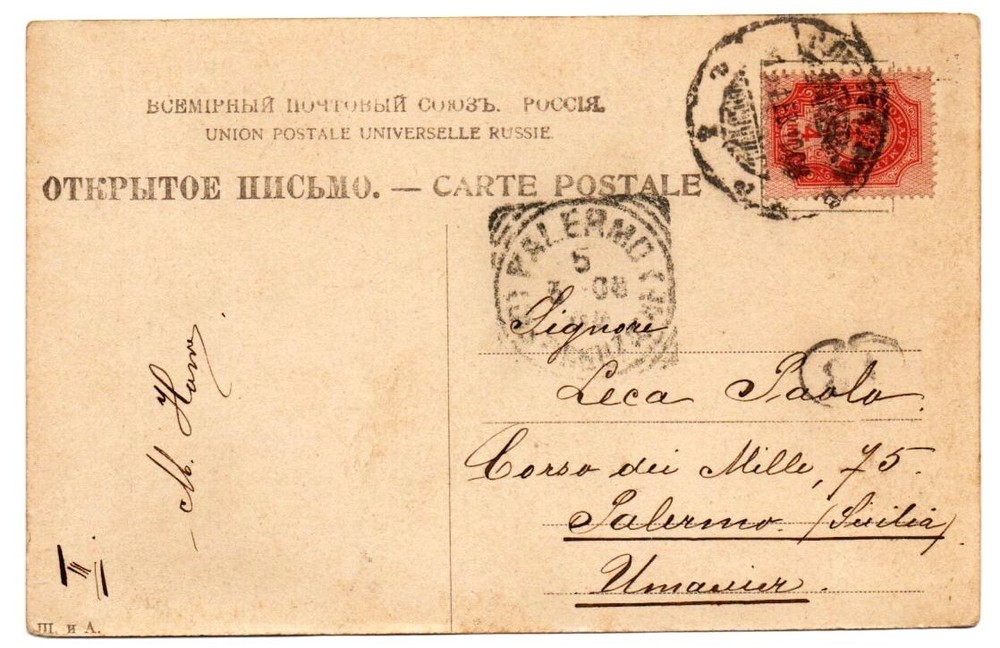 ВСЕМІРНЫЙ ПОЧТОВЫЙ СОЮЗЪ. РОССІЯ.
UNION POSTALE UNIVERSELLE RUSSIE.
ОТКРЫТОЕ ПИСЬМО. — CARTE POSTALE
4
PALERMO
5
08
Signore
Leca Paolo.
Corso dei Mille, 75.
Palermo (Sicilia)
Италия.
M.
III
Ш. и А.